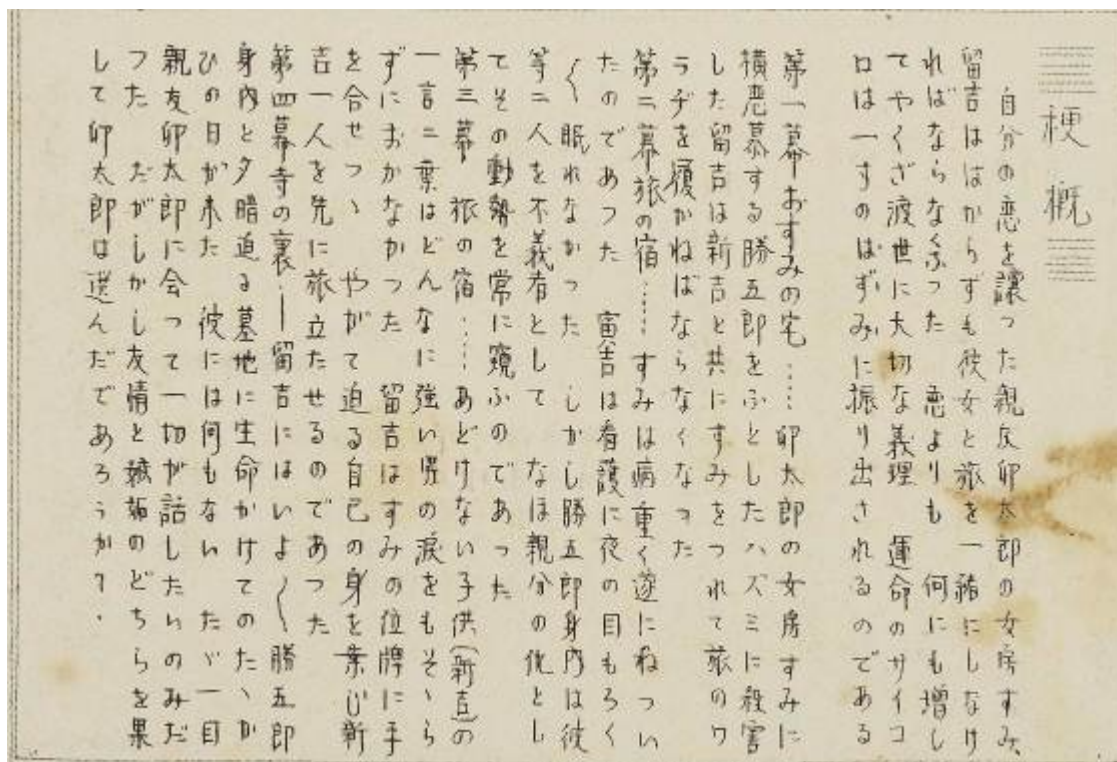 梗概
自分の恋を譲った親友卯太郎の女房すみ、
留吉ははからずも彼女と旅を一緒にしなけ
ればならなくなった 恋よりも 何にも増し
てやくざ渡世に大切な義理 運命のサイコ
ロは一寸のはずみに振り出されるのである
第一幕おすみの宅……卯太郎の女房すみに
横恋慕する勝五郎をふとしたハズミに殺害
した留吉は新吉と共にすみをつれて旅のワ
ラヂを履かねばならなくなった
第二幕旅の宿……すみは病重く遂にねつい
たのであつた 留吉は看護に夜の目もろく
〱眠れなかった しかし勝五郎身内は彼
等二人を不義者として なほ親分の仇とし
てその動勢を常に窺ふのであった
第三幕 旅の宿……あどけない子供(新吉)の
一言二葉はどんなに強い男の涙をもそゝら
ずにおかなかった 留吉はすみの位牌に手
を合せつゝ やがて迫る自己の身を案じ新
吉一人を先に旅立たせるのであつた
第四幕寺の裏――留吉にはいよ〱勝五郎
身内と夕暗迫る墓地に生命かけてのたゝか
ひの日が来た 彼には何もない たゞ一目
親友卯太郎に会って一切が話したいのみだ
つた だがしかし友情と嫉妬のどちらを果
して卯太郎は選んだであろうか?.